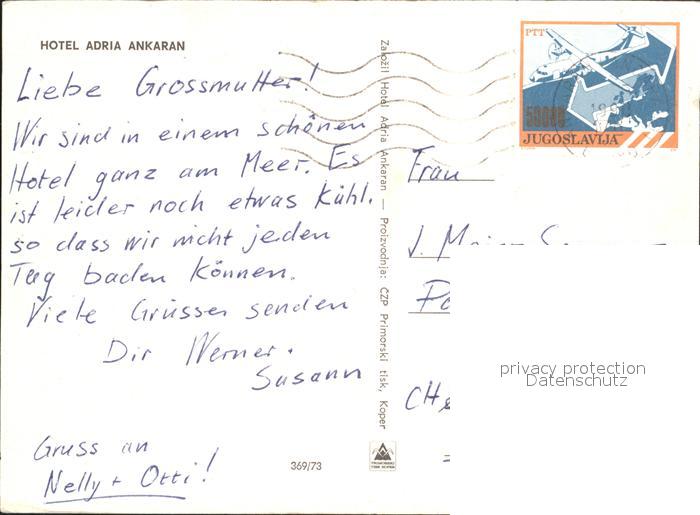 HOTEL ADRIA ANKARAN
Liebe Grossmutter!
Wir sind in einem schönen
Hotel ganz am Meer. Es
ist leider noch etwas kühl.
so dass wir nicht jeden
Tag baden können.
Viele Grüsse senden
Dir Werner.
Susann
Gruss an
Nelly + Otti!
369/73
Založil Hotel Adria Ankaran — Proizvodnja: ČZP Primorski tisk, Koper
PTT
50000
JUGOSLAVIJA
Frau
J.
CH
privacy protection
Datenschutz